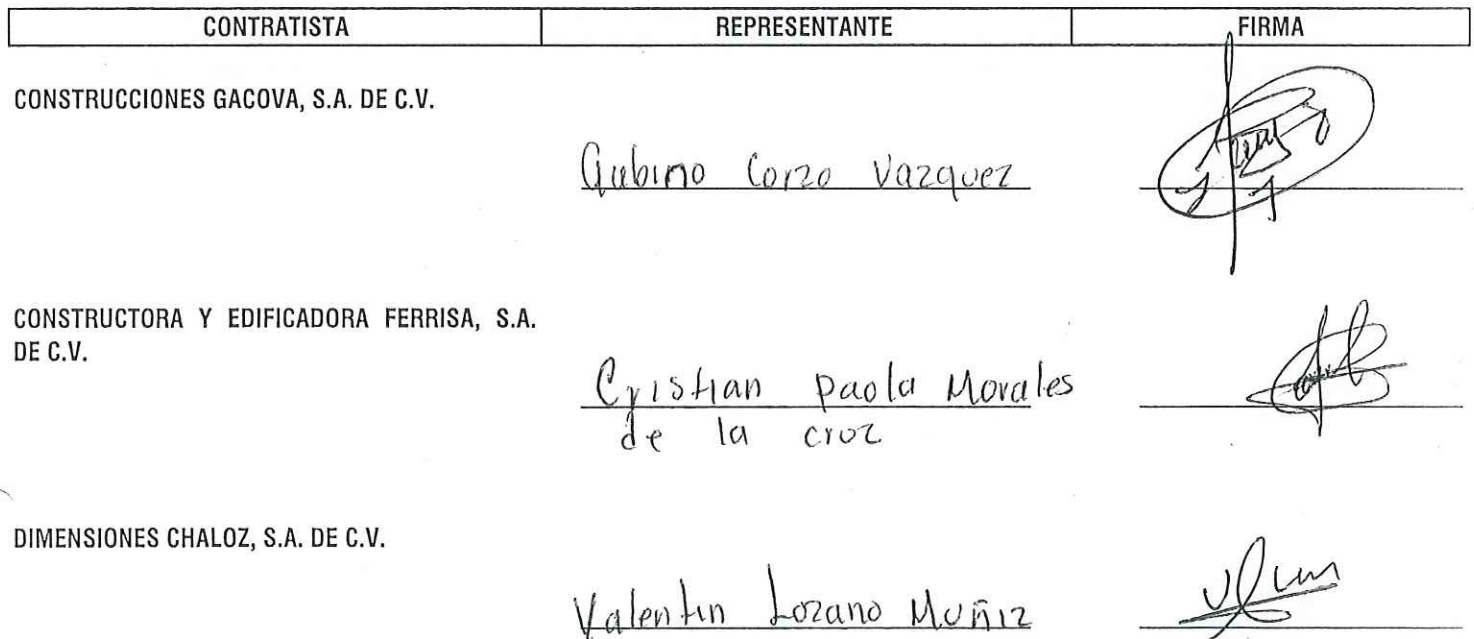 CONTRATISTA REPRESENTANTE FIRMA
CONSTRUCCIONES GACOVA, S.A. DE C.V.
Gubino Corzo Vazquez
CONSTRUCTORA Y EDIFICADORA FERRISA, S.A.
DE C.V.
Cristian Paola Morales
de la cruz
DIMENSIONES CHALOZ, S.A. DE C.V.
Valentin Lozano Muñiz